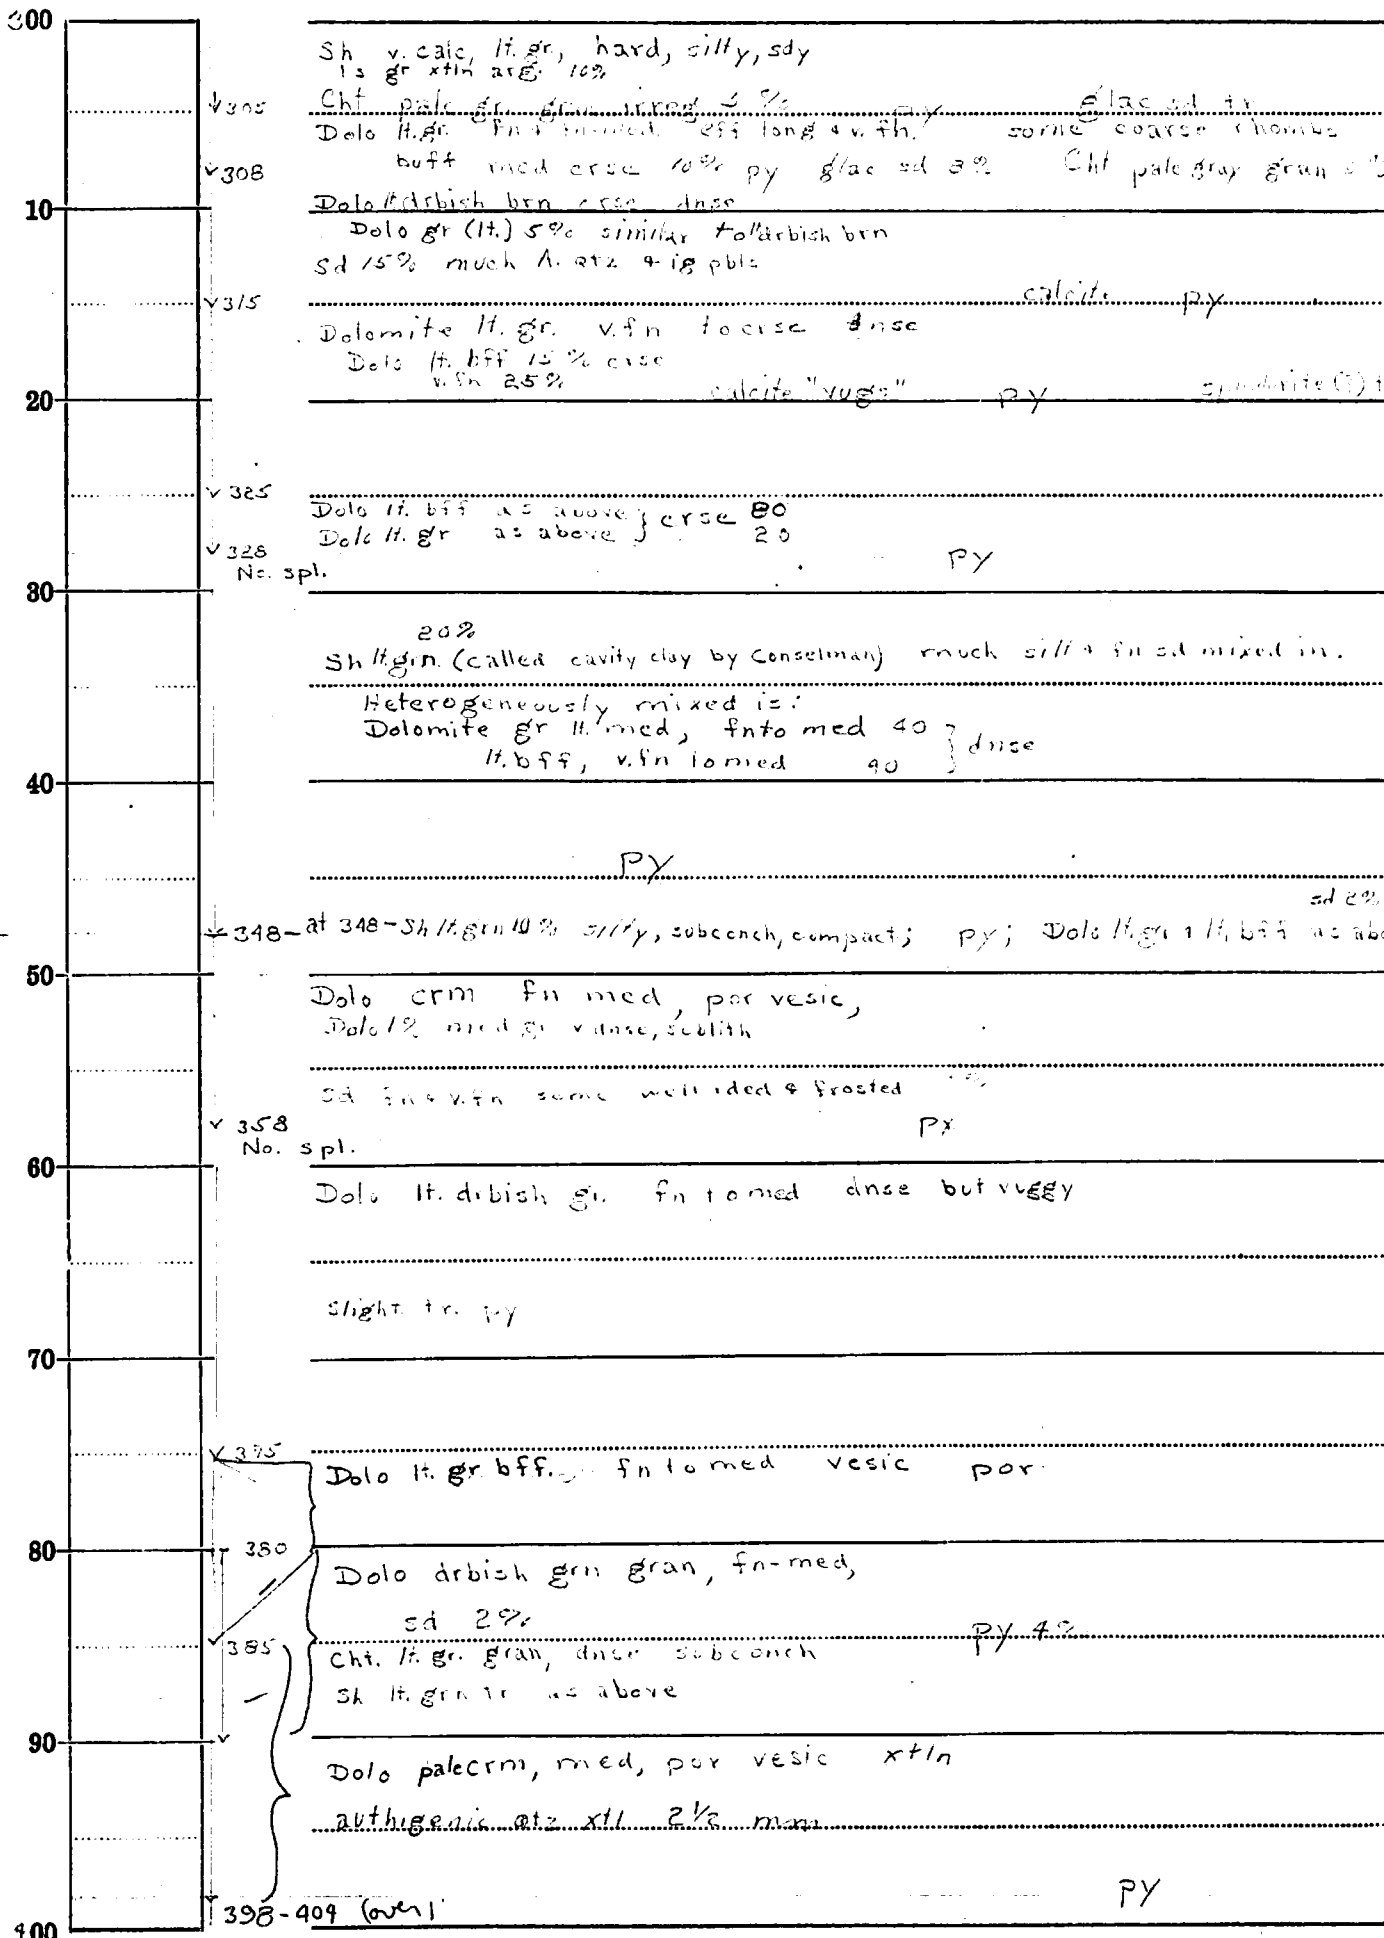 300
Sh v. calc, lt. gr, hard, silty, sdy
ls gr xtln arg. 10%
305
Cht pale gr. gran irreg % py glac sd tr
Dolo lt. gr. fn & v. fn. some coarse rhombs
308
buff med crse 10% py glac sd 3% Cht pale gray gran
10
Dolo lt drbish brn crse dnse
Dolo gr (lt.) 5% similar to lt drbish brn
Sd 15% much A. qtz & ig pbls
315
calcite py
Dolomite lt. gr. v. fn to crse dnse
Dolo lt. bff 15% crse
v. fn 25%
20
calcite "vugs" py
325
Dolo lt. bff as above } crse 80
Dolo lt. gr as above } 20
328
py
No. spl.
30
20%
Sh lt. grn. (called cavity clay by Conselman) much silt & fn sd mixed in.
Heterogeneously mixed is:
Dolomite gr lt. med, fn to med 40 } dnse
lt. bff, v. fn to med 40
40
py
sd 2%
348 - at 348 - Sh lt. grn 10% silty, subconch, compact; py; Dolo lt. gr & lt. bff as abo
50
Dolo crm fn med, por vesic,
Dolo 1% med gr v dnse, sublith
Sd fn & v. fn some well rded & frosted
358
py
No. spl.
60
Dolo lt. drbish gr. fn to med dnse but vuggy
Slight tr. py
70
375
Dolo lt. gr bff. fn to med vesic por.
80
380
Dolo drbish grn gran, fn-med,
sd 2% py 4%
385
Cht. lt. gr. gran, dnse subconch
Sh lt. grn tr as above
90
Dolo pale crm, med, por vesic xtln
authigenic qtz xtl 2 1/2 mm
py
398-404 (over)
400